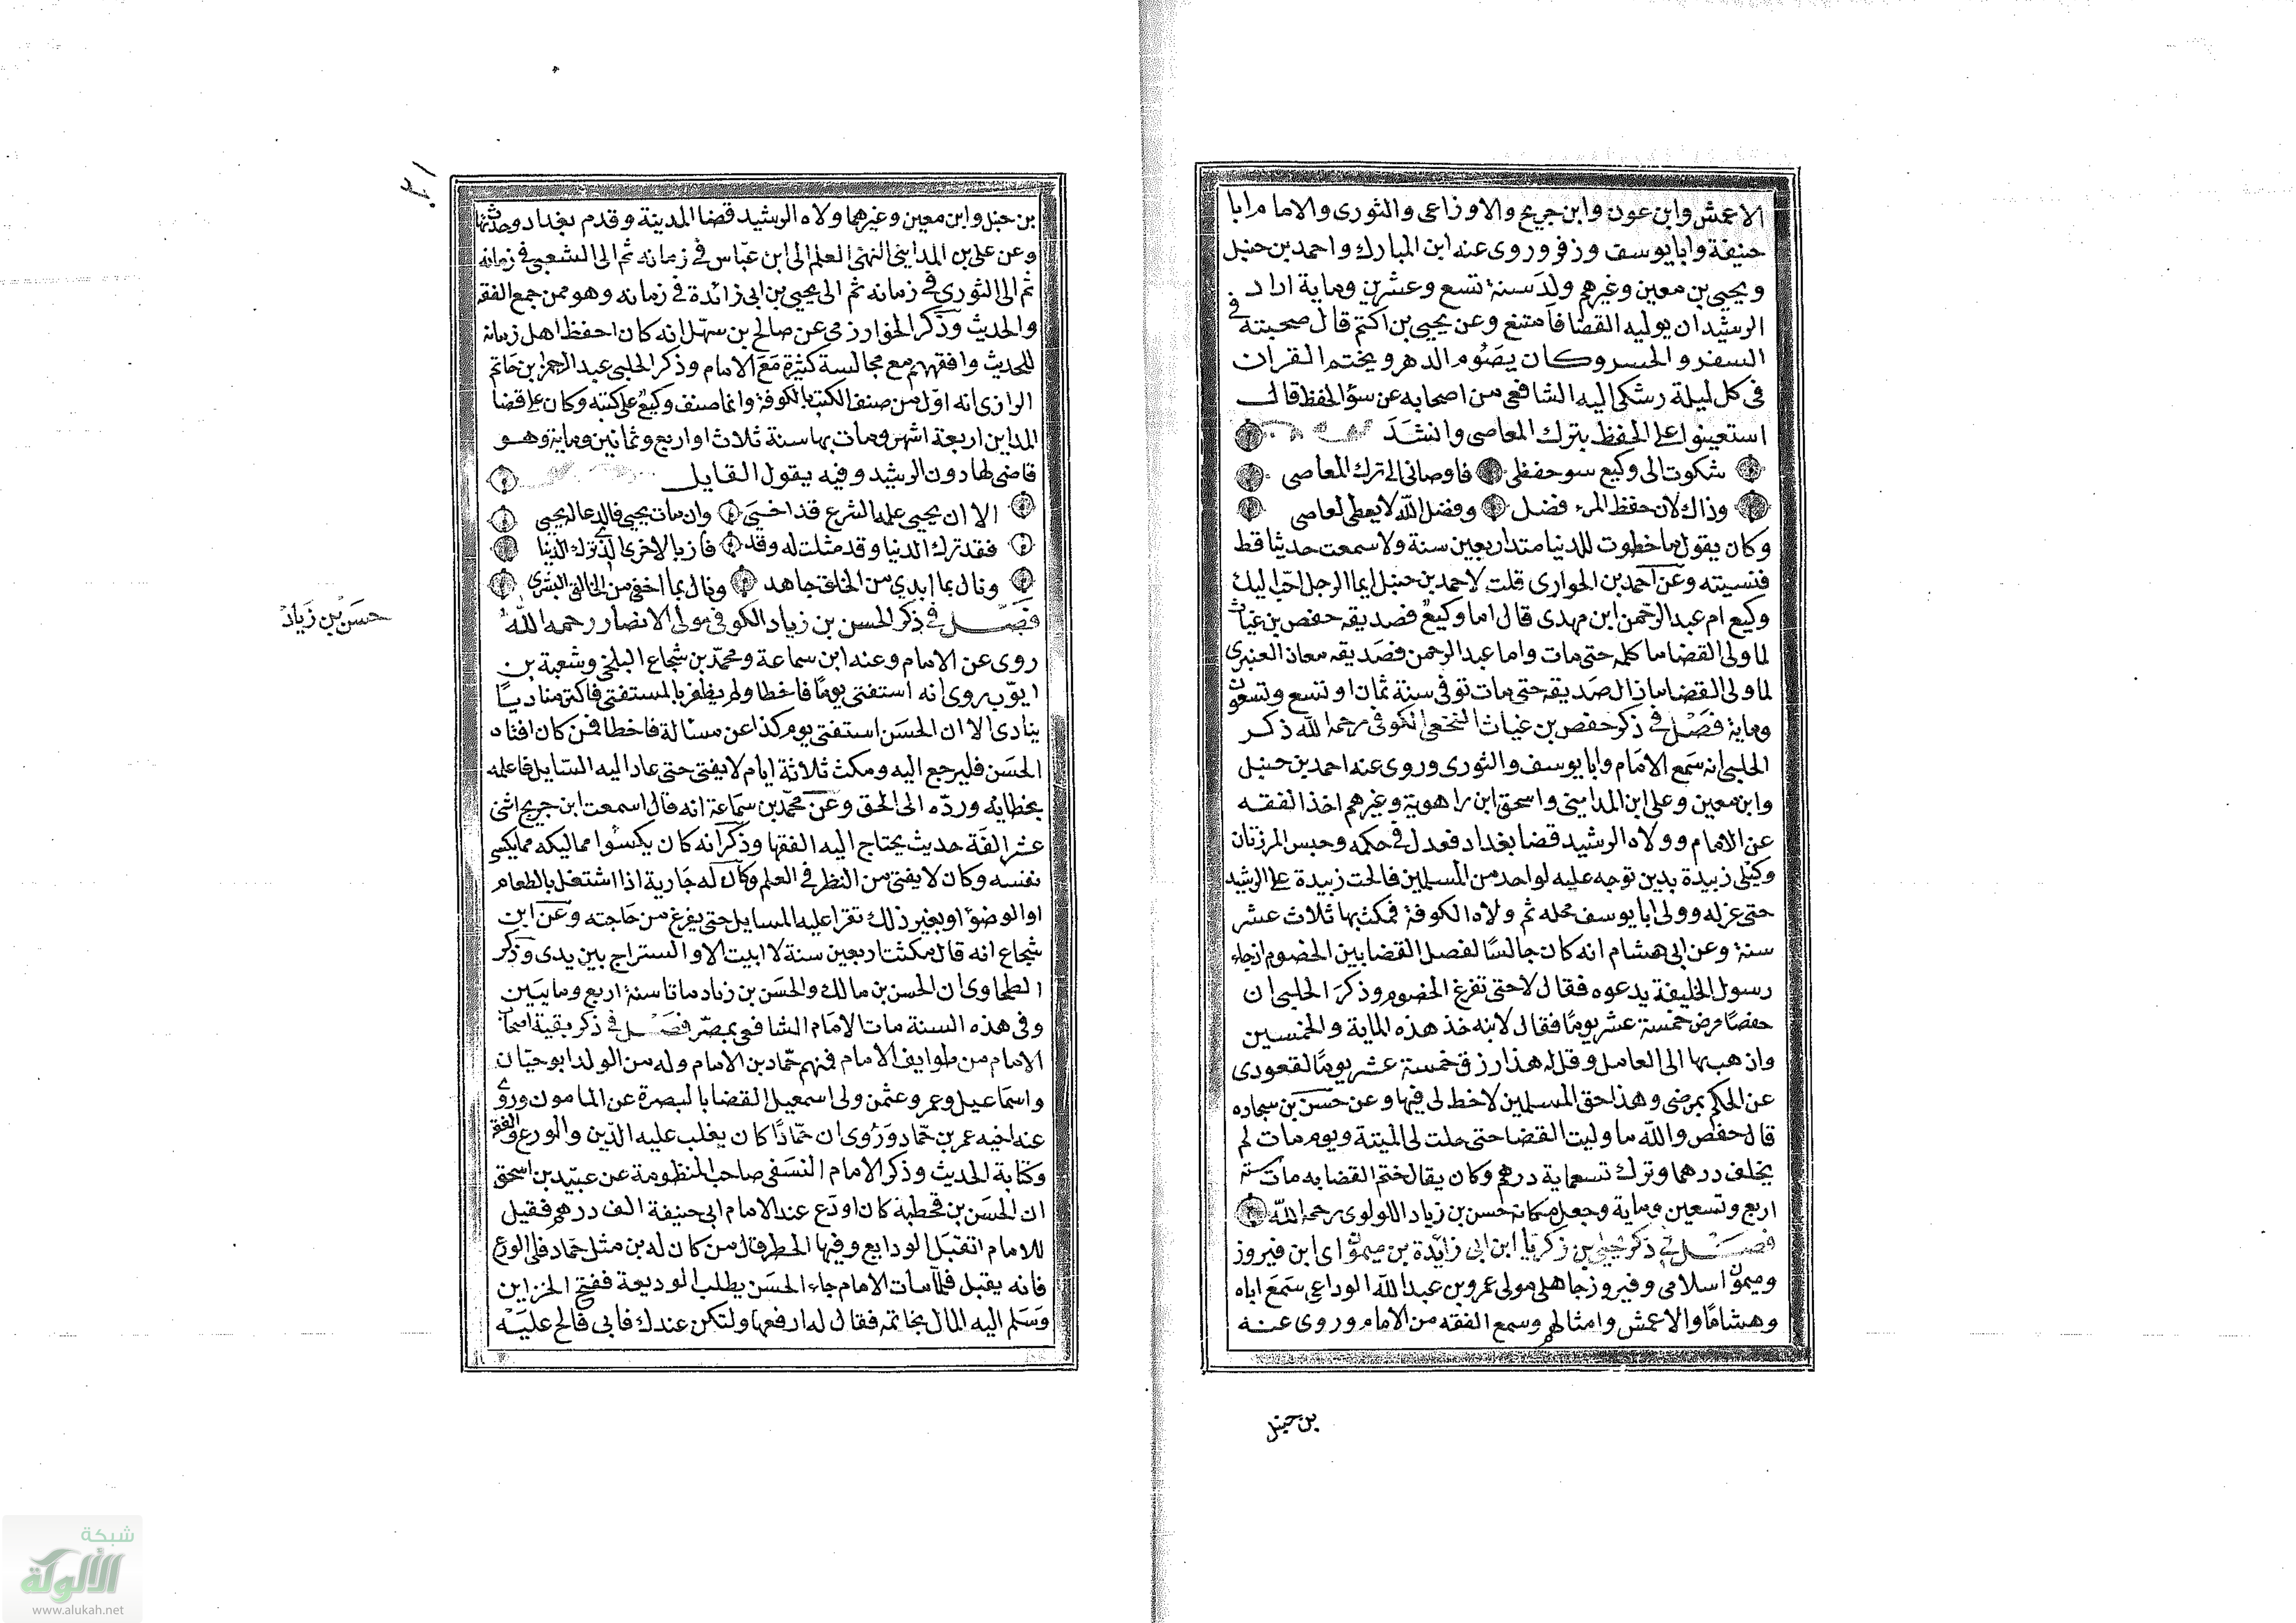 الاعمش وابن عون وابن جريج والاوزاعى والثورى والامام ابا
حنيفة وابا يوسف وزفر وروى عنه ابن المبارك واحمد بن حنبل
ويحيى بن معين وغيرهم ولد سنة تسع وعشرين وماية اراد
الرشيد ان يوليه القضا فامتنع وعن يحيى بن اكتم قال صحبته فى
السفر والحسر وكان يصوم الدهر ويختم القران
فى كل ليلة رشكى اليه الشافعى من اصحابه عن سؤ الحفظ قال
استعينوا على الحفظ بترك المعاصى وانشد
شكوت الى وكيع سو حفظى فاوصانى الى ترك المعاصى
وذاك لان حفظ المرء فضل وفضل الله لا يعطى لعاصى
وكان يقول ما خطوت للدنيا منذ اربعين سنة ولا سمعت حديثا قط
فنسيته وعن احمد بن الحوارى قلت لاحمد بن حنبل ايما الرجل احب اليك
وكيع ام عبد الرحمن ابن مهدى قال اما وكيع فصديقه حفص بن غياث
لما ولى القضا ما كلمه حتى مات واما عبد الرحمن فصديقه معاذ العنبرى
لما ولى القضا ما زال صديقه حتى مات توفى سنة ثمان او تسع وتسعون
وماية فصل فى ذكر حفص بن غياث النخعى الكوفى رحمه الله ذكر
الحلبى انه سمع الامام وابا يوسف والثورى وروى عنه احمد بن حنبل
وابن معين وعلى ابن المداينى واسحق ابن راهوية وغيرهم اخذ الفقه
عن الامام وولاه الرشيد قضا بغداد فعدل فى حكمه وحبس المرزتان
وكيلى زبيدة بدين توجه عليه لواحد من المسلمين فالحت زبيدة على الرشيد
حتى عزله وولى ابا يوسف محله ثم ولاه الكوفة فمكث بها ثلاث عشر
سنة وعن ابى هشام انه كان جالسا لفصل القضا بين الخصوم اذ جاء
رسول الخليفة يدعوه فقال لا حتى تفرغ الخصوم وذكر الحلبى ان
حفصا مرض خمسة عشر يوما فقال لابنه خذ هذه الماية والخمسين
واذهب بها الى العامل وقل له هذا رزق خمسة عشر يوما لقعودى
عن الحكم بمرضى وهذا حق المسلمين لا خط لى فيها وعن حسن بن سجاده
قال حفص والله ما وليت القضا حتى حلت لى الميتة ويوم مات لم
يخلف درهما وترك تسعماية درهم وكان يقال ختم القضا به مات سنة
اربع وتسعين وماية وجعل مكانه حسن بن زياد اللولوى رحمه الله
فصل فى ذكر يحيى بن زكريا ابن ابى زائدة بن ميمون اى ابن فيروز
وميمون اسلامى وفيروز جاهلى مولى عمرو بن عبد الله الوداعى سمع اباه
وهشاما والاعمش وامثالهم وسمع الفقه من الامام وروى عنه
بن حنبل
٢١
بن حنبل وابن معين وغيرهما ولاه الرشيد قضا المدينة وقدم بغداد وحدث بها
وعن على بن المداينى انتهى العلم الى ابن عباس فى زمانه ثم الى الشعبى فى زمانه
ثم الى الثورى فى زمانه ثم الى يحيى بن ابى زائدة فى زمانه وهو ممن جمع الفقه
والحديث وذكر الخوارزمى عن صالح بن سهل انه كان احفظ اهل زمانه
للحديث وافقههم مع مجالسة كثيرة مع الامام وذكر الحلبى عبد الرحمن بن حاتم
الرازى انه اول من صنف الكتب بالكوفة وانما صنف وكيع على كتبه وكان على قضا
المداين اربعة اشهر ومات بها سنة ثلاث او اربع وثمانين وماية وهو
قاضى لهادون الرشيد وفيه يقول القايل
الا ان يحيى علمه الشرع قد اخيى وان مات يحيى فالدعا له يحيى
فقد ترك الدنيا وقد مثلت له وقد فاز بالاخرى الذى ترك الدينا
ونال بما ابدي من الخلق جاهد ونال بما اخفى من الخالق البشرى
فصل فى ذكر الحسن بن زياد الكوفى مولى الانصار رحمه الله
حسن بن زياد
روى عن الامام وعنه ابن سماعة ومحمد بن شجاع البلخى وشعبة بن
ايوب روى انه استفتى يوما فاخطا ولم يظفر بالمستفتى فاكترى مناديا
ينادى الا ان الحسن استفتى يوم كذا عن مسالة فاخطا فمن كان افتاه
الحسن فليرجع اليه ومكث ثلاثة ايام لا يفتى حتى عاد اليه السايل فاعلمه
بخطايه ورده الى الحق وعن محمد بن سماعة انه قال اسمعت ابن جريج اثنى
عشر الفة حديث يحتاج اليه الفقها وذكر انه كان يكسوا مماليكه مما يكسى
نفسه وكان لا يفتى من النظر فى العلم وكان له جارية اذا اشتغل بالطعام
او الوضؤ او بغير ذلك تقرا عليه المسايل حتى يفرغ من حاجته وعن ابن
شجاع انه قال مكثت اربعين سنة لا ابيت الا والستراج بين يدى وذكر
الطحاوى ان الحسن بن مالك والحسن بن زياد ماتا سنة اربع ومايتين
وفى هذه السنة مات الامام الشافعى بمصر فصل فى ذكر بقية اصحاب
الامام من طوايف الامام فمنهم حماد بن الامام وله من الولد ابو حيان
واسماعيل وعمر وعثمن ولى اسمعيل القضا بالبصرة عن المامون وروى
عنه اخيه عمر بن حماد وروى ان حمادا كان يغلب عليه الدين والورع والفقه
وكتابة الحديث وذكر الامام النسفى صاحب المنظومة عن عبيد بن اسحق
ان الحسن بن قحطبة كان اودع عند الامام ابى حنيفة الف درهم فقيل
للامام اتقبل الودايع وفيها الخطر قال من كان له بن مثل حماد فى الورع
فانه يقبل فلما مات الامام جاء الحسن يطلب الوديعة ففتح الخزاين
وسلم اليه المال بخاتمه فقال له ارفعها ولتكن عندك فابى فالح عليه
شبكة
الألوكة
www.alukah.net